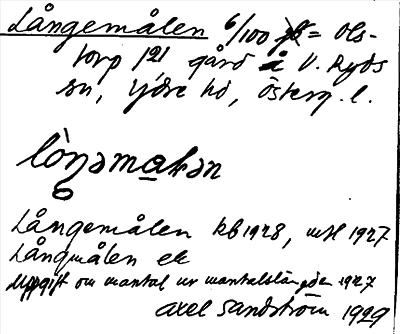 Långemålen 6/100 = Ols-
torp 1²¹ gård å V. Ryds
sn, Ydre hd, Österg. l.
lòŋəmakən
Långemålen kb 1928, mtl 1927
Långmålen ek
Uppgift om mantal ur mantalslängden 1927
Axel Sandström 1929